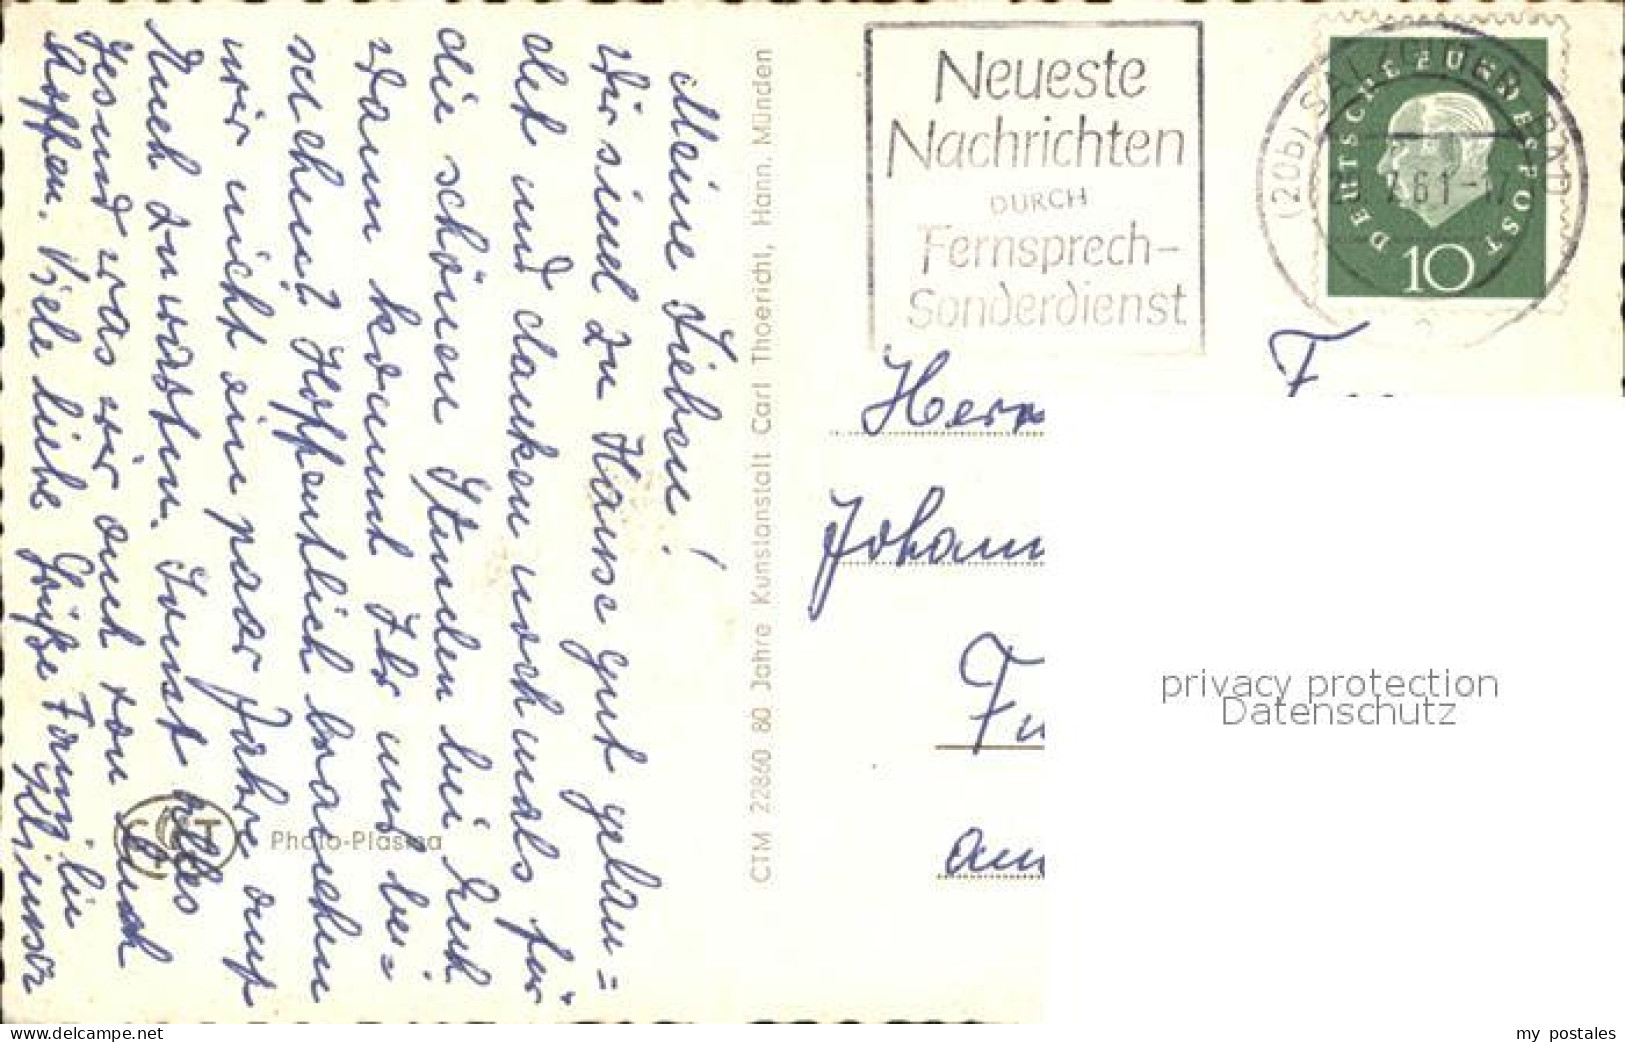 Meine Lieben!
Wir sind zu Hause gut gelan=
det und danken nochmals für
die schönen Stunden bei Euch
Wann kommt Ihr uns be=
suchen? Hoffentlich brauchen
wir nicht ein paar Jahre auf
Euch zu warten. Sonst alles
gesund was wir auch von Euch
hoffen. Viele liebe Grüße Familie
CTM 22860 80 Jahre Kunstanstalt Carl Thoericht, Hann. Münden
Photo-Plasma
Neueste
Nachrichten
DURCH
Fernsprech-
Sonderdienst
(20b) SALZGITTER-BAD
7.61-17
DEUTSCHE BUNDESPOST
10
Herrn
Johann
Fu
am
privacy protection
Datenschutz
www.delcampe.net
my_postales